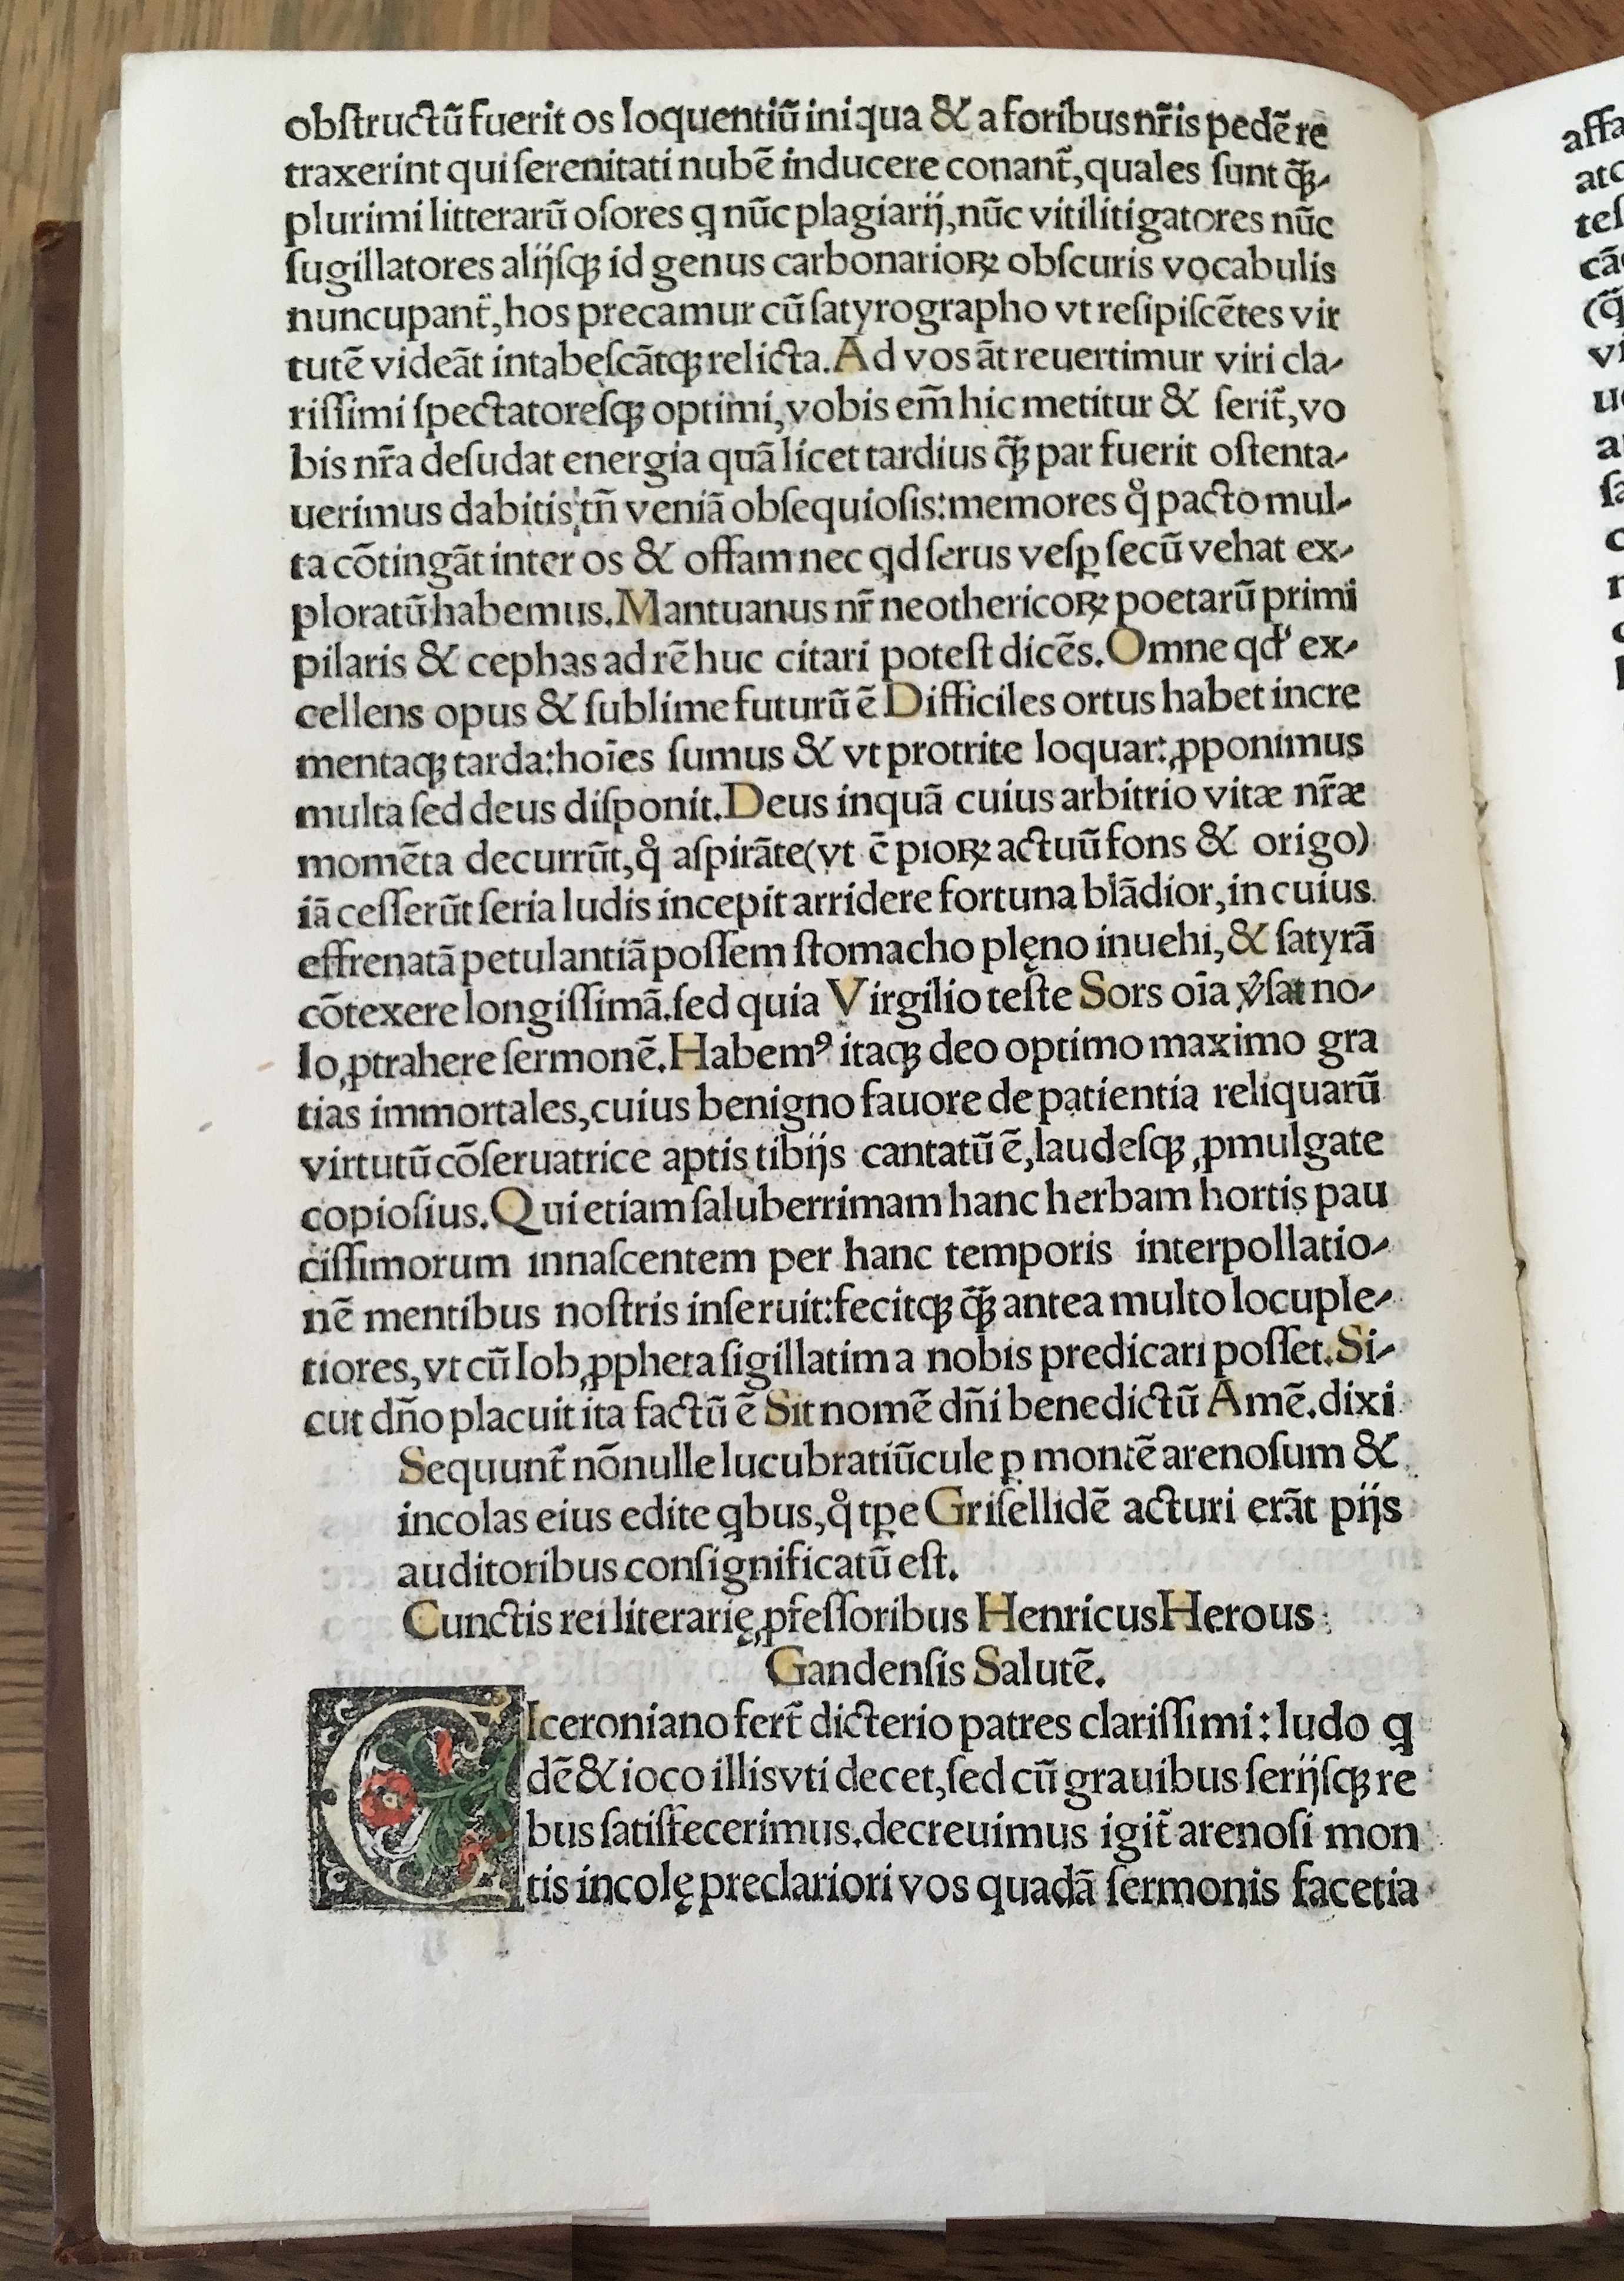 obſtructū fuerit os loquentiū iniqua & a foribus nr̄is pedē re
traxerint qui ſerenitati nubē inducere conant̄, quales ſunt q̄ꝫ-
plurimi litterarū oſores q nūc plagiarij, nūc vitilitigatores nūc
ſugillatores alijſqꝫ id genus carbonarioꝝ obſcuris vocabulis
nuncupant̄, hos precamur cū ſatyrographo vt reſipiſcētes vir
tutē videāt intabeſcātqꝫ relicta. Ad vos āt reuertimur viri cla-
riſſimi ſpectatoreſqꝫ optimi, vobis em̄ hic metitur & ſerit̄, vo
bis nr̄a deſudat energia quā licet tardius q̄ꝫ par fuerit oſtenta-
uerimus dabitis tn̄ veniā obſequioſis: memores qͦ pacto mul-
ta cōtingāt inter os & offam nec qd ſerus veſꝑ ſecū vehat ex-
ploratū habemus. Mantuanus nr̄ neothericoꝝ poetarū primi
pilaris & cephas ad rē huc citari poteſt dicēs. Omne qd' ex-
cellens opus & ſublime futurū ē Difficiles ortus habet incre
mentaqꝫ tarda: hoīes ſumus & vt protrite loquar: ꝓponimus
multa ſed deus diſponit. Deus inquā cuius arbitrio vitæ nr̄æ
momēta decurrūt, qͦ aſpirāte (vt ē pioꝝ actuū fons & origo)
iā ceſſerūt ſeria ludis incepit arridere fortuna blādior, in cuius
effrenatā petulantiā poſſem ſtomacho plęno inuehi, & ſatyrā
cōtexere longiſſimā. ſed quia Virgilio teſte Sors oīa v̉ſat no-
lo ꝓtrahere ſermonē. Habemꝰ itaqꝫ deo optimo maximo gra
tias immortales, cuius benigno fauore de patientia reliquarū
virtutū cōſeruatrice aptis tibijs cantatū ē, laudeſqꝫ ꝓmulgate
copioſius. Qui etiam ſaluberrimam hanc herbam hortis pau
ciſſimorum innaſcentem per hanc temporis interpollatio-
nē mentibus noſtris inſeruit: fecitqꝫ q̄ꝫ antea multo locuple-
tiores, vt cū Iob ꝓpheta ſigillatim a nobis predicari poſſet. Si-
cut dn̄o placuit ita factū ē Sit nomē dn̄i benedictū Amē. dixi
Sequunt̄ nōnulle lucubratiūcule ꝑ montē arenoſum &
incolas eius edite qbus, qͦ tꝑe Griſellidē acturi erāt pijs
auditoribus conſignificatū eſt.
Cunctis rei literarię ꝓfeſſoribus Henricus Herous
Gandenſis Salutē.
CIceroniano fert̄ dicterio patres clariſſimi: ludo q
dē & ioco illis vti decet, ſed cū grauibus ſerijſqꝫ re
bus ſatiſfecerimus. decreuimus igit̄ arenoſi mon
tis incolę preclariori vos quadā ſermonis facetia